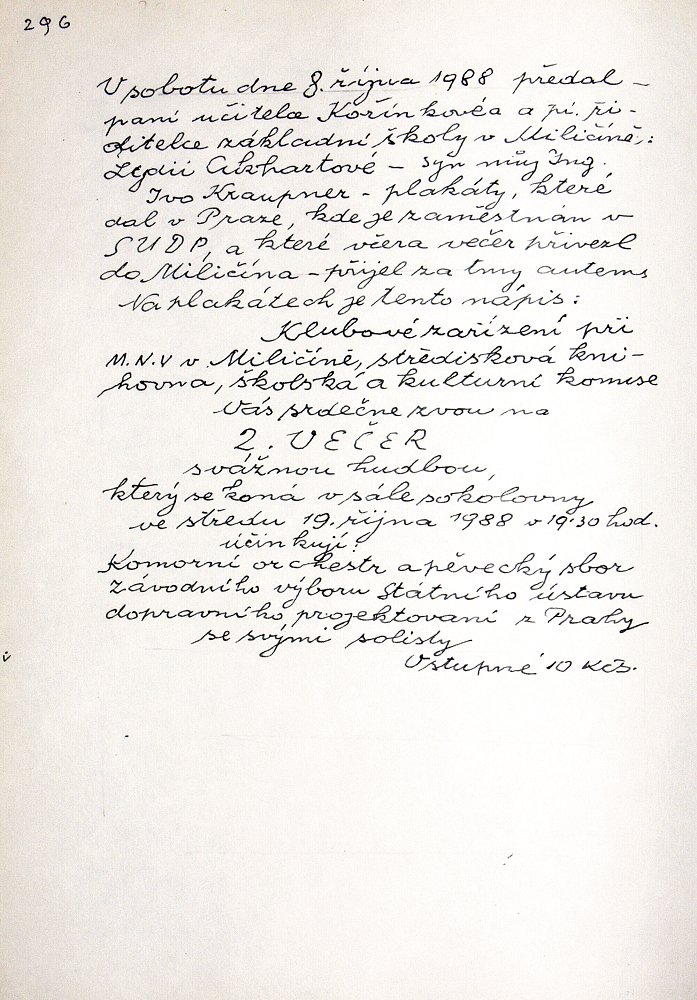 296
V sobotu dne 8. října 1988 předal –
paní učitelce Kořínkovéa a pí. ři-
ditelce základní školy v Miličíně,:
Lydii Cikhartové – syn můj Ing.
Ivo Kraupner – plakáty, které
dal v Praze, kde je zaměstnán v
SUDP, a které včera večer přivezl
do Miličína – přijel za tmy autem.
Na plakátech je tento nápis:
Klubové zařízení při
M.N.V v Miličíně, středisková kni-
hovna, školská a kulturní komise
Vás srdečne zvou na
2. VEČER
svážnou hudbou,
který se koná v sále sokolovny
ve středu 19. října 1988 v 19.30 hod.
účinkují:
Komorní orchestr a pěvecký sbor
závodního výboru Státního ústavu
dopravního projektovaní z Prahy
se svými solisty
Vstupné 10 Kčs.